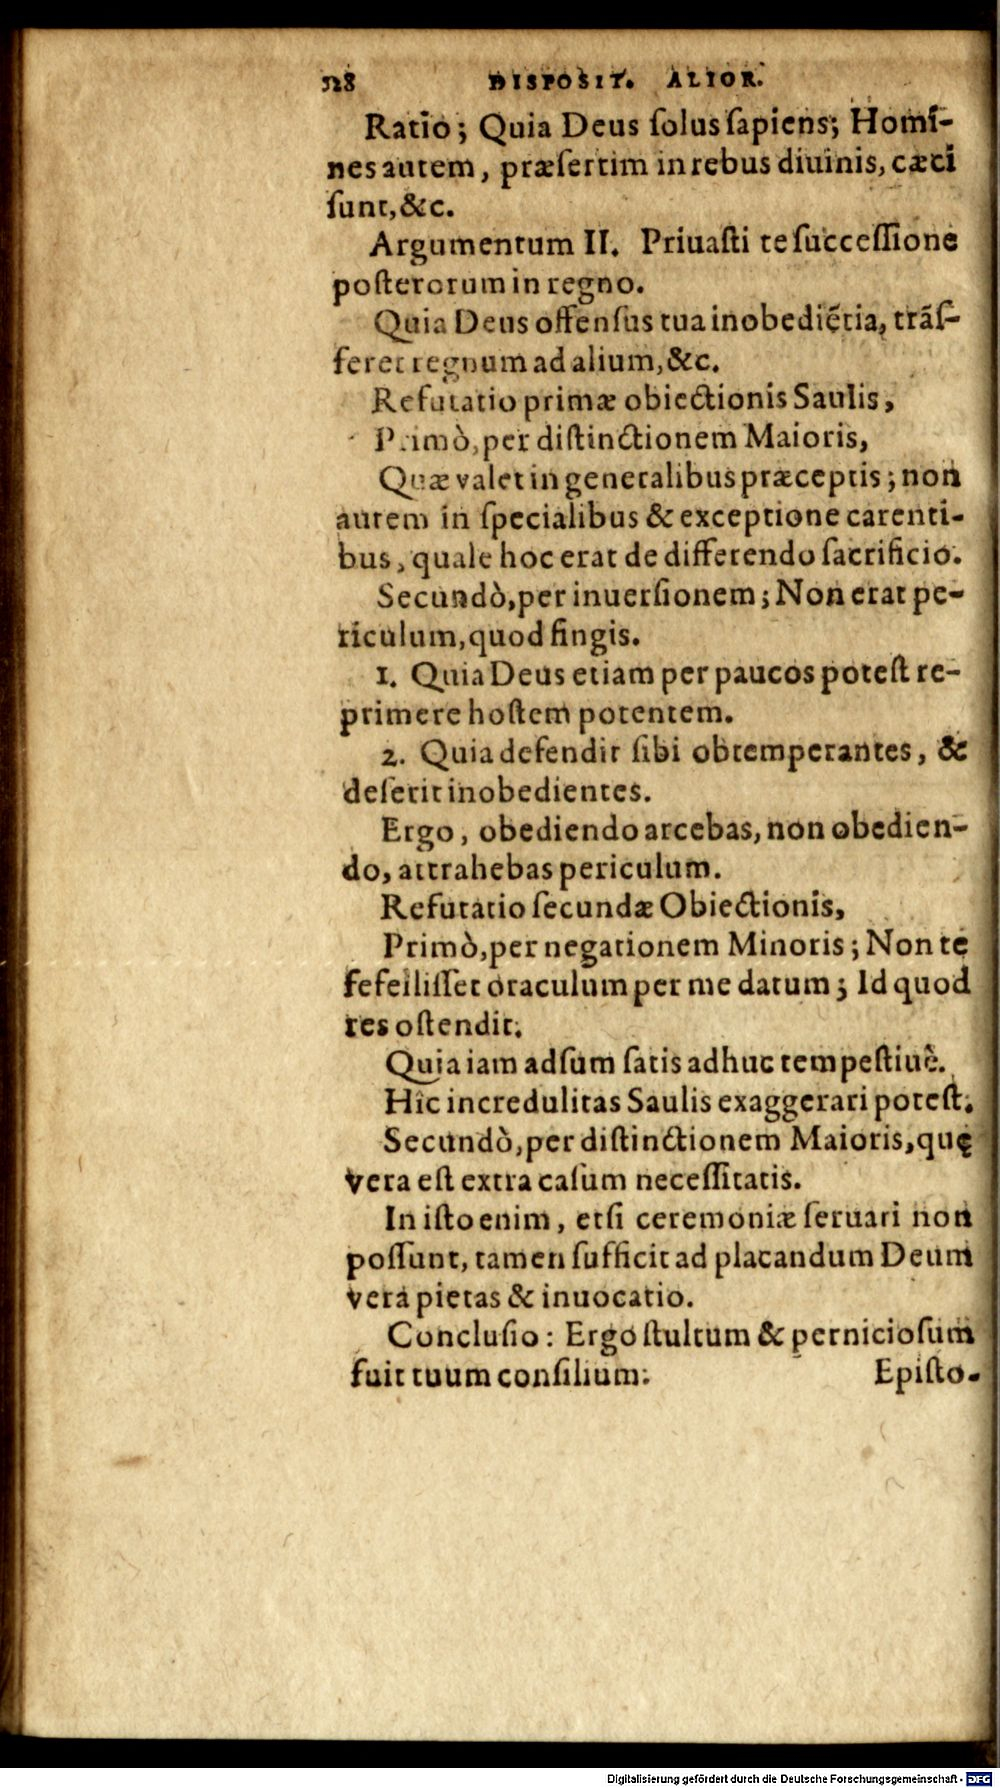 528 DISPOSIT. ALIOR.
Ratio; Quia Deus ſolus ſapiens; Homi-
nes autem, præſertim in rebus diuinis, cæci
ſunt, &c.
Argumentum II. Priuaſti te ſucceſſione
poſterorum in regno.
Quia Deus offenſus tua inobediẽtia, trãſ-
feret regnum ad alium, &c.
Refutatio primæ obiectionis Saulis,
Primò, per diſtinctionem Maioris,
Quæ valet in generalibus præceptis; non
autem in ſpecialibus & exceptione carenti-
bus, quale hoc erat de differendo ſacrificio.
Secundò, per inuerſionem; Non erat pe-
riculum, quod fingis.
1. Quia Deus etiam per paucos poteſt re-
primere hoſtem potentem.
2. Quia defendit ſibi obtemperantes, &
deſerit inobedientes.
Ergo, obediendo arcebas, non obedien-
do, attrahebas periculum.
Refutatio ſecundæ Obiectionis,
Primò, per negationem Minoris; Non te
fefelliſſet oraculum per me datum; Id quod
res oſtendit.
Quia iam adſum ſatis adhuc tempeſtiuè.
Hic incredulitas Saulis exaggerari poteſt.
Secundò, per diſtinctionem Maioris, quę
vera eſt extra caſum neceſſitatis.
In iſto enim, etſi ceremoniæ ſeruari non
poſſunt, tamen ſufficit ad placandum Deum
vera pietas & inuocatio.
Concluſio: Ergo ſtultum & pernicioſum
fuit tuum conſilium. Epiſto-
Digitalisierung gefördert durch die Deutsche Forschungsgemeinschaft - DFG